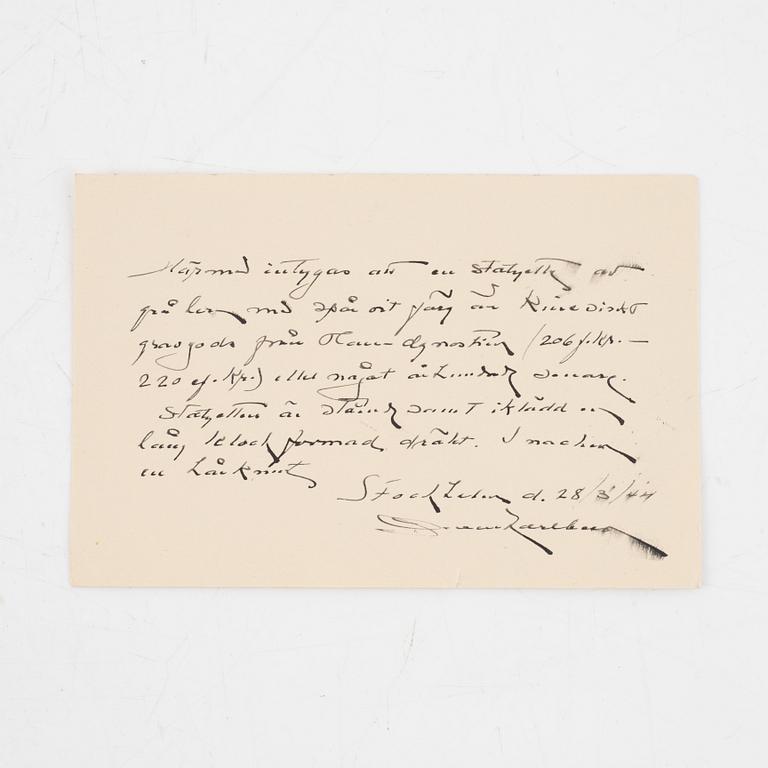 Härmed intygas att en statyett av
grå lera med spår vit färg är Kinesiskt
gravgods från Han-dynastien (206 f.Kr.—
220 ef.Kr.) eller något århundrade senare.
Statyetten är stående samt iklädd en
lång klockformad dräkt. I nacken
en hårknut
Stockholm d. 28/3/44
Karlbeck